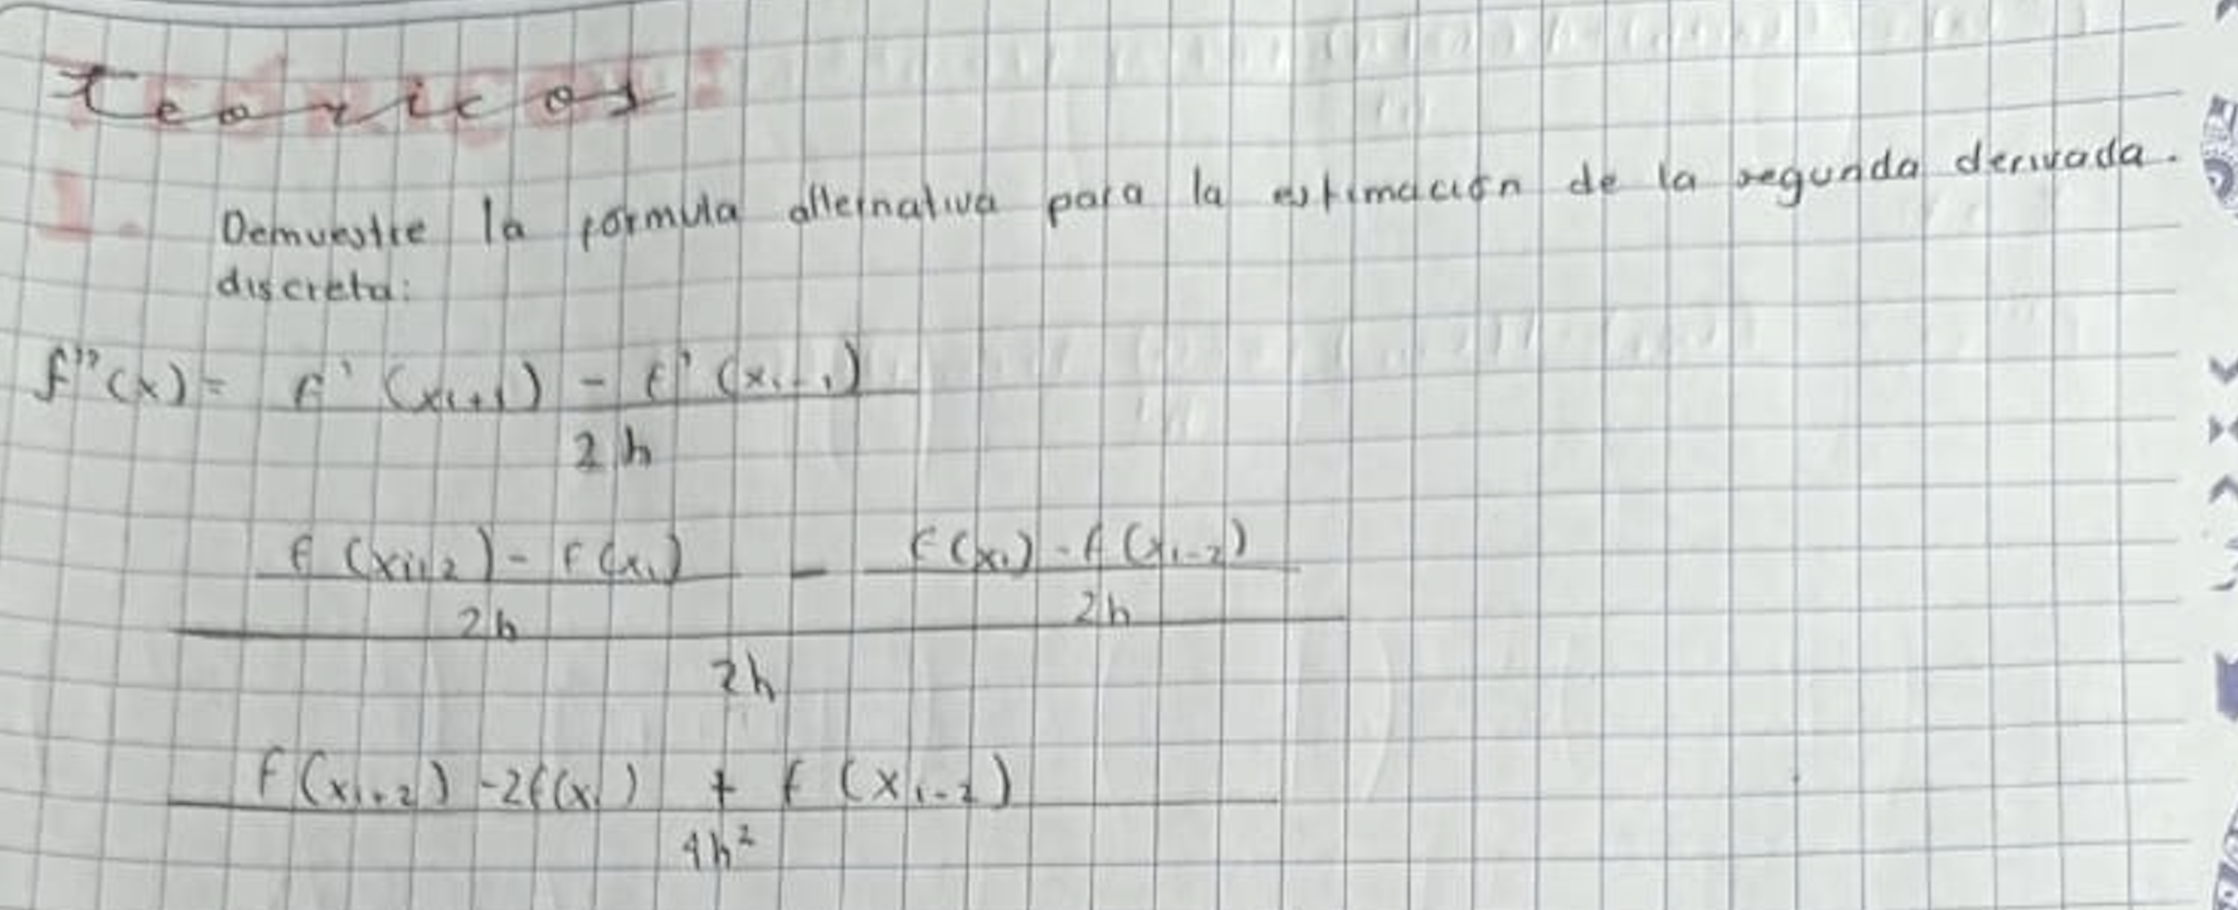 Teoricos:
1. Demuestre la fórmula alternativa para la estimación de la segunda derivada.
discreta:
f''(x) = f'(xi+1) - f'(xi-1)
2h
f(xi+2) - f(xi) - f(xi) - f(xi-2)
2h 2h
2h
f(xi+2) -2f(xi) + f(xi-2)
4h²